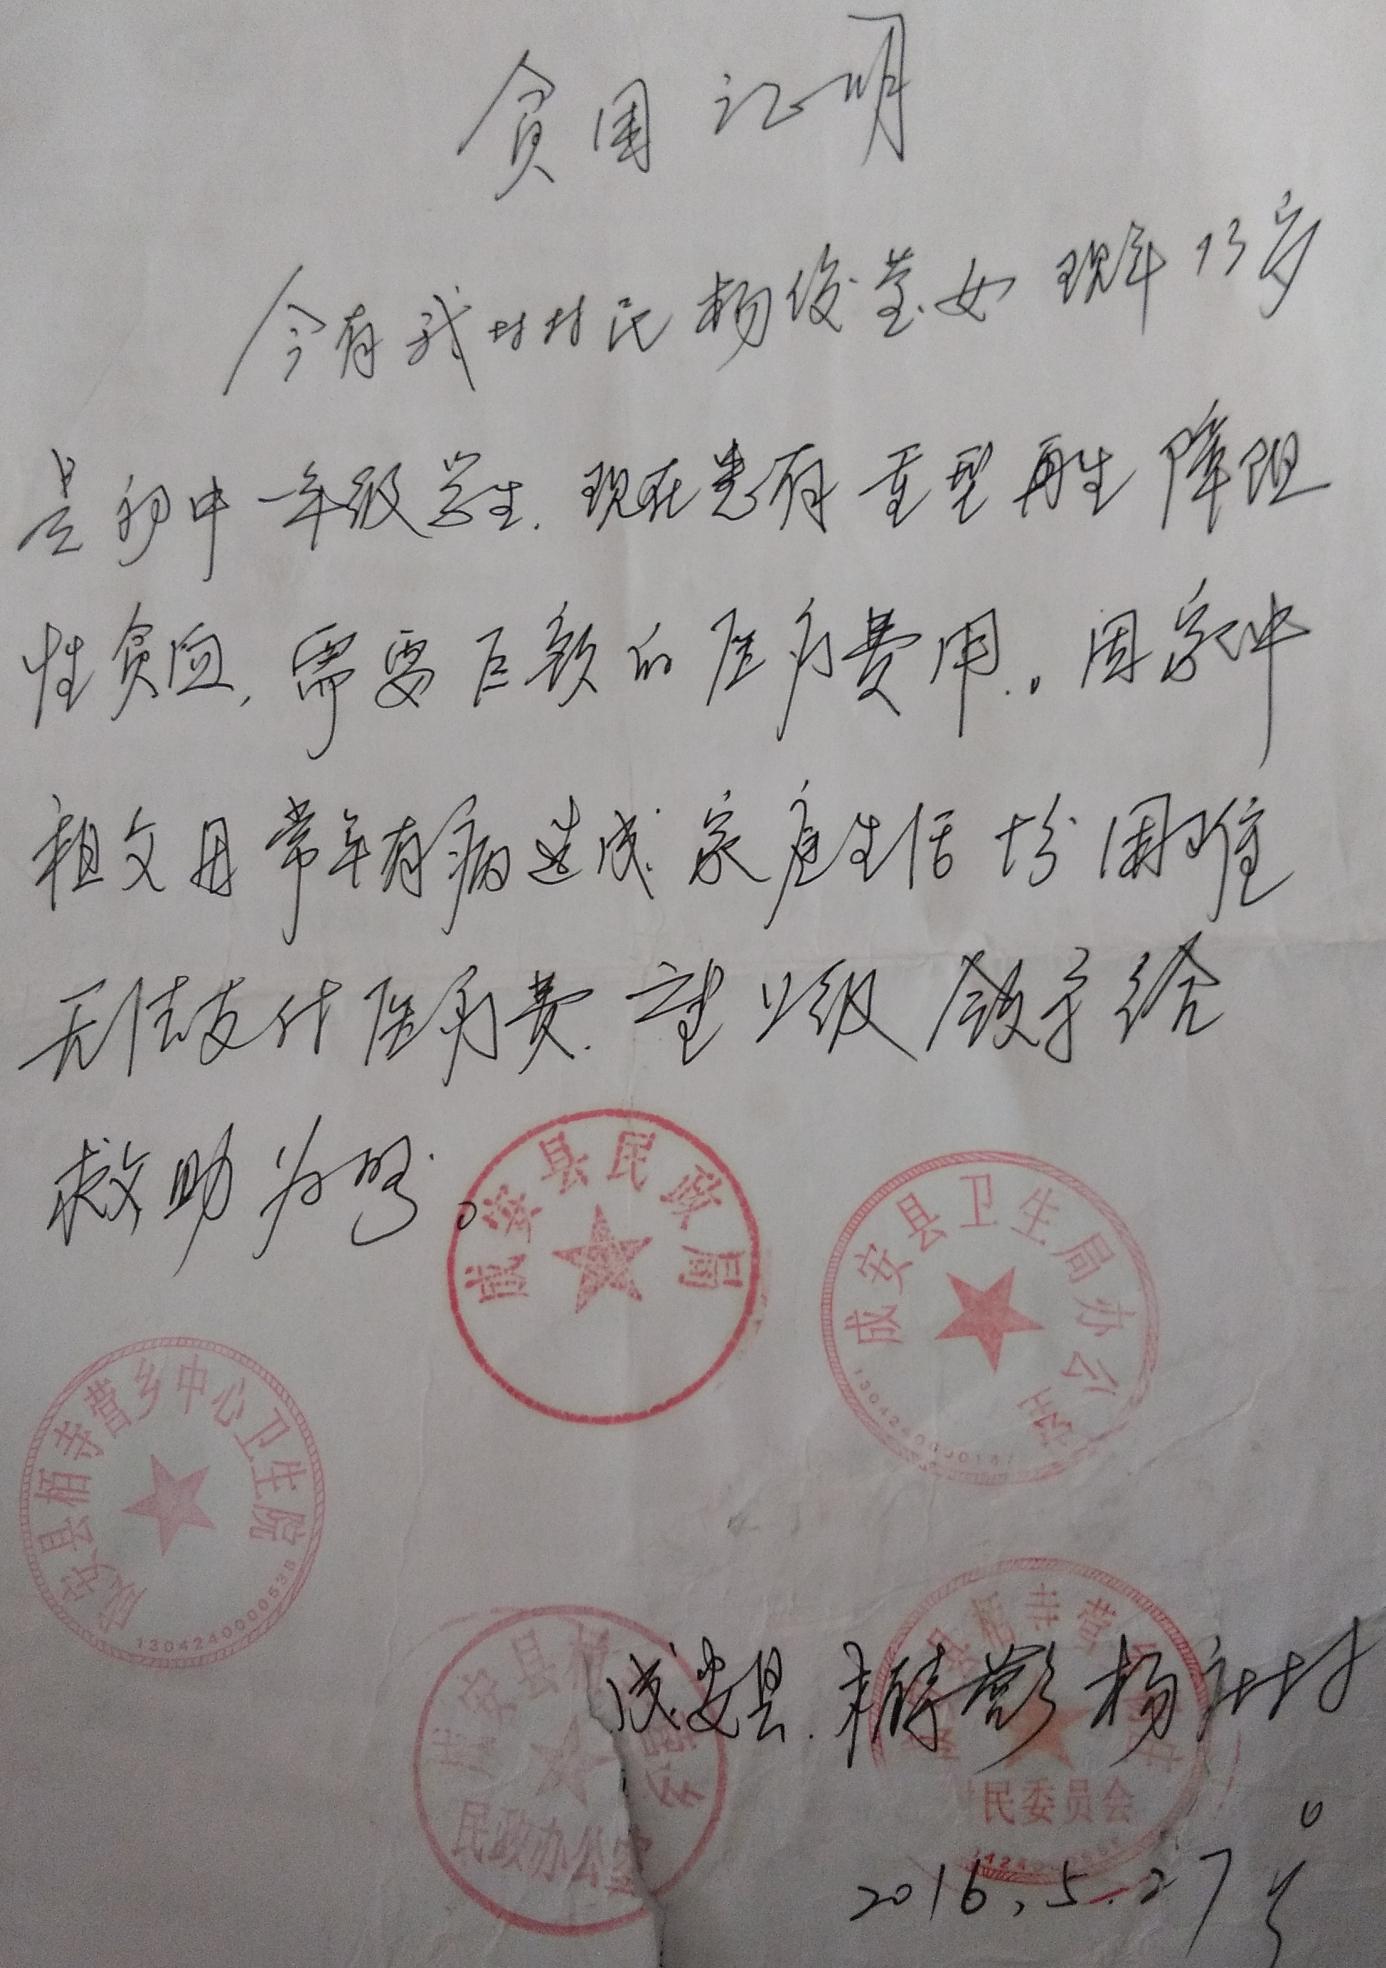 贫困证明
今有我村村民杨俊莹女现年13岁
是初中一年级学生.现在患有重型再生障阻
性贫血,需要巨额的医疗费用.。因家中
祖父母常年有病造成家庭生活十分困难
无法支付医疗费.请上级领导给
救助为盼。
成安县民政局
成安县卫生局办公室
1304240000187
成安县柏寺营乡中心卫生院
1304240000538
成安县柏寺营乡
民政办公室
成安县柏寺营乡杨庄村
村民委员会
2016.5.27号